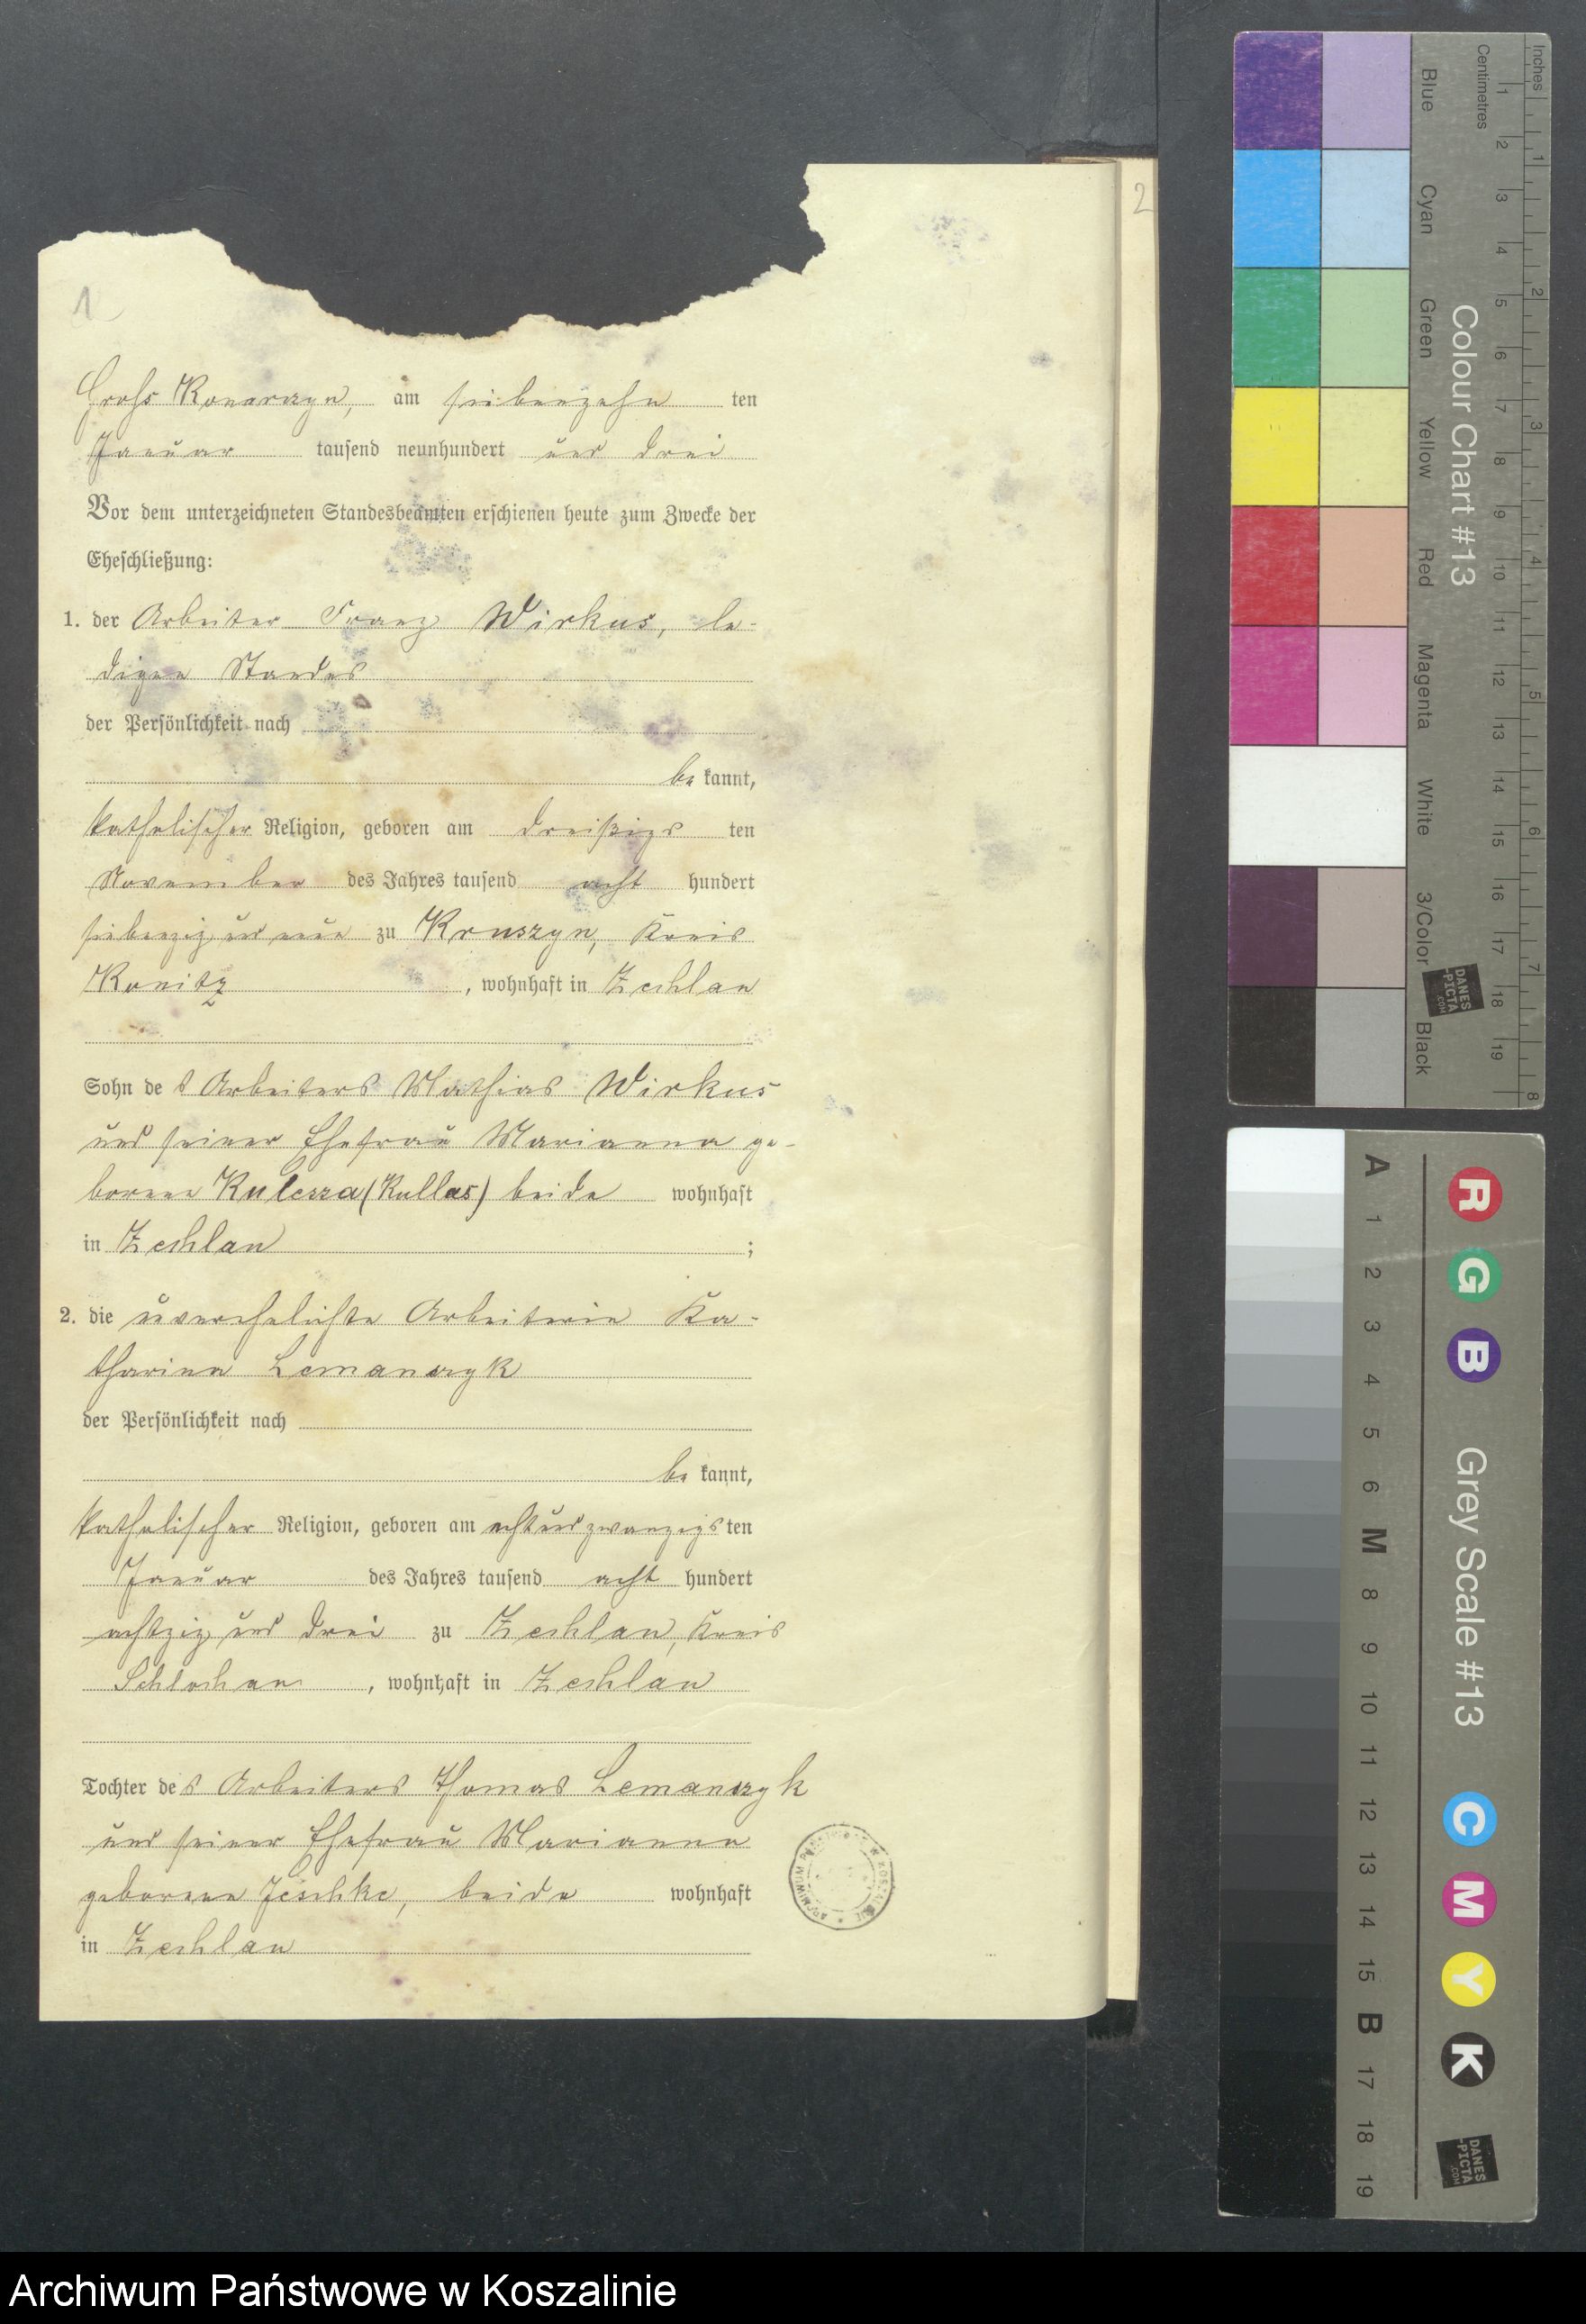 1
2
Groß Konarczyn, am siebenzehn ten
Januar tausend neunhundert und drei
Vor dem unterzeichneten Standesbeamten erschienen heute zum Zwecke der
Eheschließung:
1. der Arbeiter Franz Wirkus, le-
digen Standes
der Persönlichkeit nach
be kannt,
katholischer Religion, geboren am dreißigs ten
November des Jahres tausend acht hundert
siebenzig und neun zu Kruszyn, Kreis
Konitz, wohnhaft in Zechlau
Sohn de s Arbeiters Mathias Wirkus
und seiner Ehefrau Marianna ge-
borene Kulesza (Kullas) beide wohnhaft
in Zechlau ;
2. die unverehelichte Arbeiterin Ka-
tharina Lemanczyk
der Persönlichkeit nach
be kannt,
katholischer Religion, geboren am achtundzwanzigs ten
Januar des Jahres tausend acht hundert
achtzig und drei zu Zechlau, Kreis
Schlochau, wohnhaft in Zechlau
Tochter de s Arbeiters Thomas Lemanczyk
und seiner Ehefrau Marianna
geborene Jeschke, beide wohnhaft
in Zechlau
Inches
Centimetres
1 2 3 4 5 6 7 8 9 10 11 12 13 14 15 16 17 18 19
1 2 3 4 5 6 7 8
Blue Cyan Green Yellow Red Magenta White 3/Color Black
Colour Chart #13
DANES
-PICTA
.COM
A 1 2 3 4 5 6 M 8 9 10 11 12 13 14 15 B 17 18 19
R G B
Grey Scale #13
C M Y K
DANES
-PICTA
.COM
Archiwum Państwowe w Koszalinie